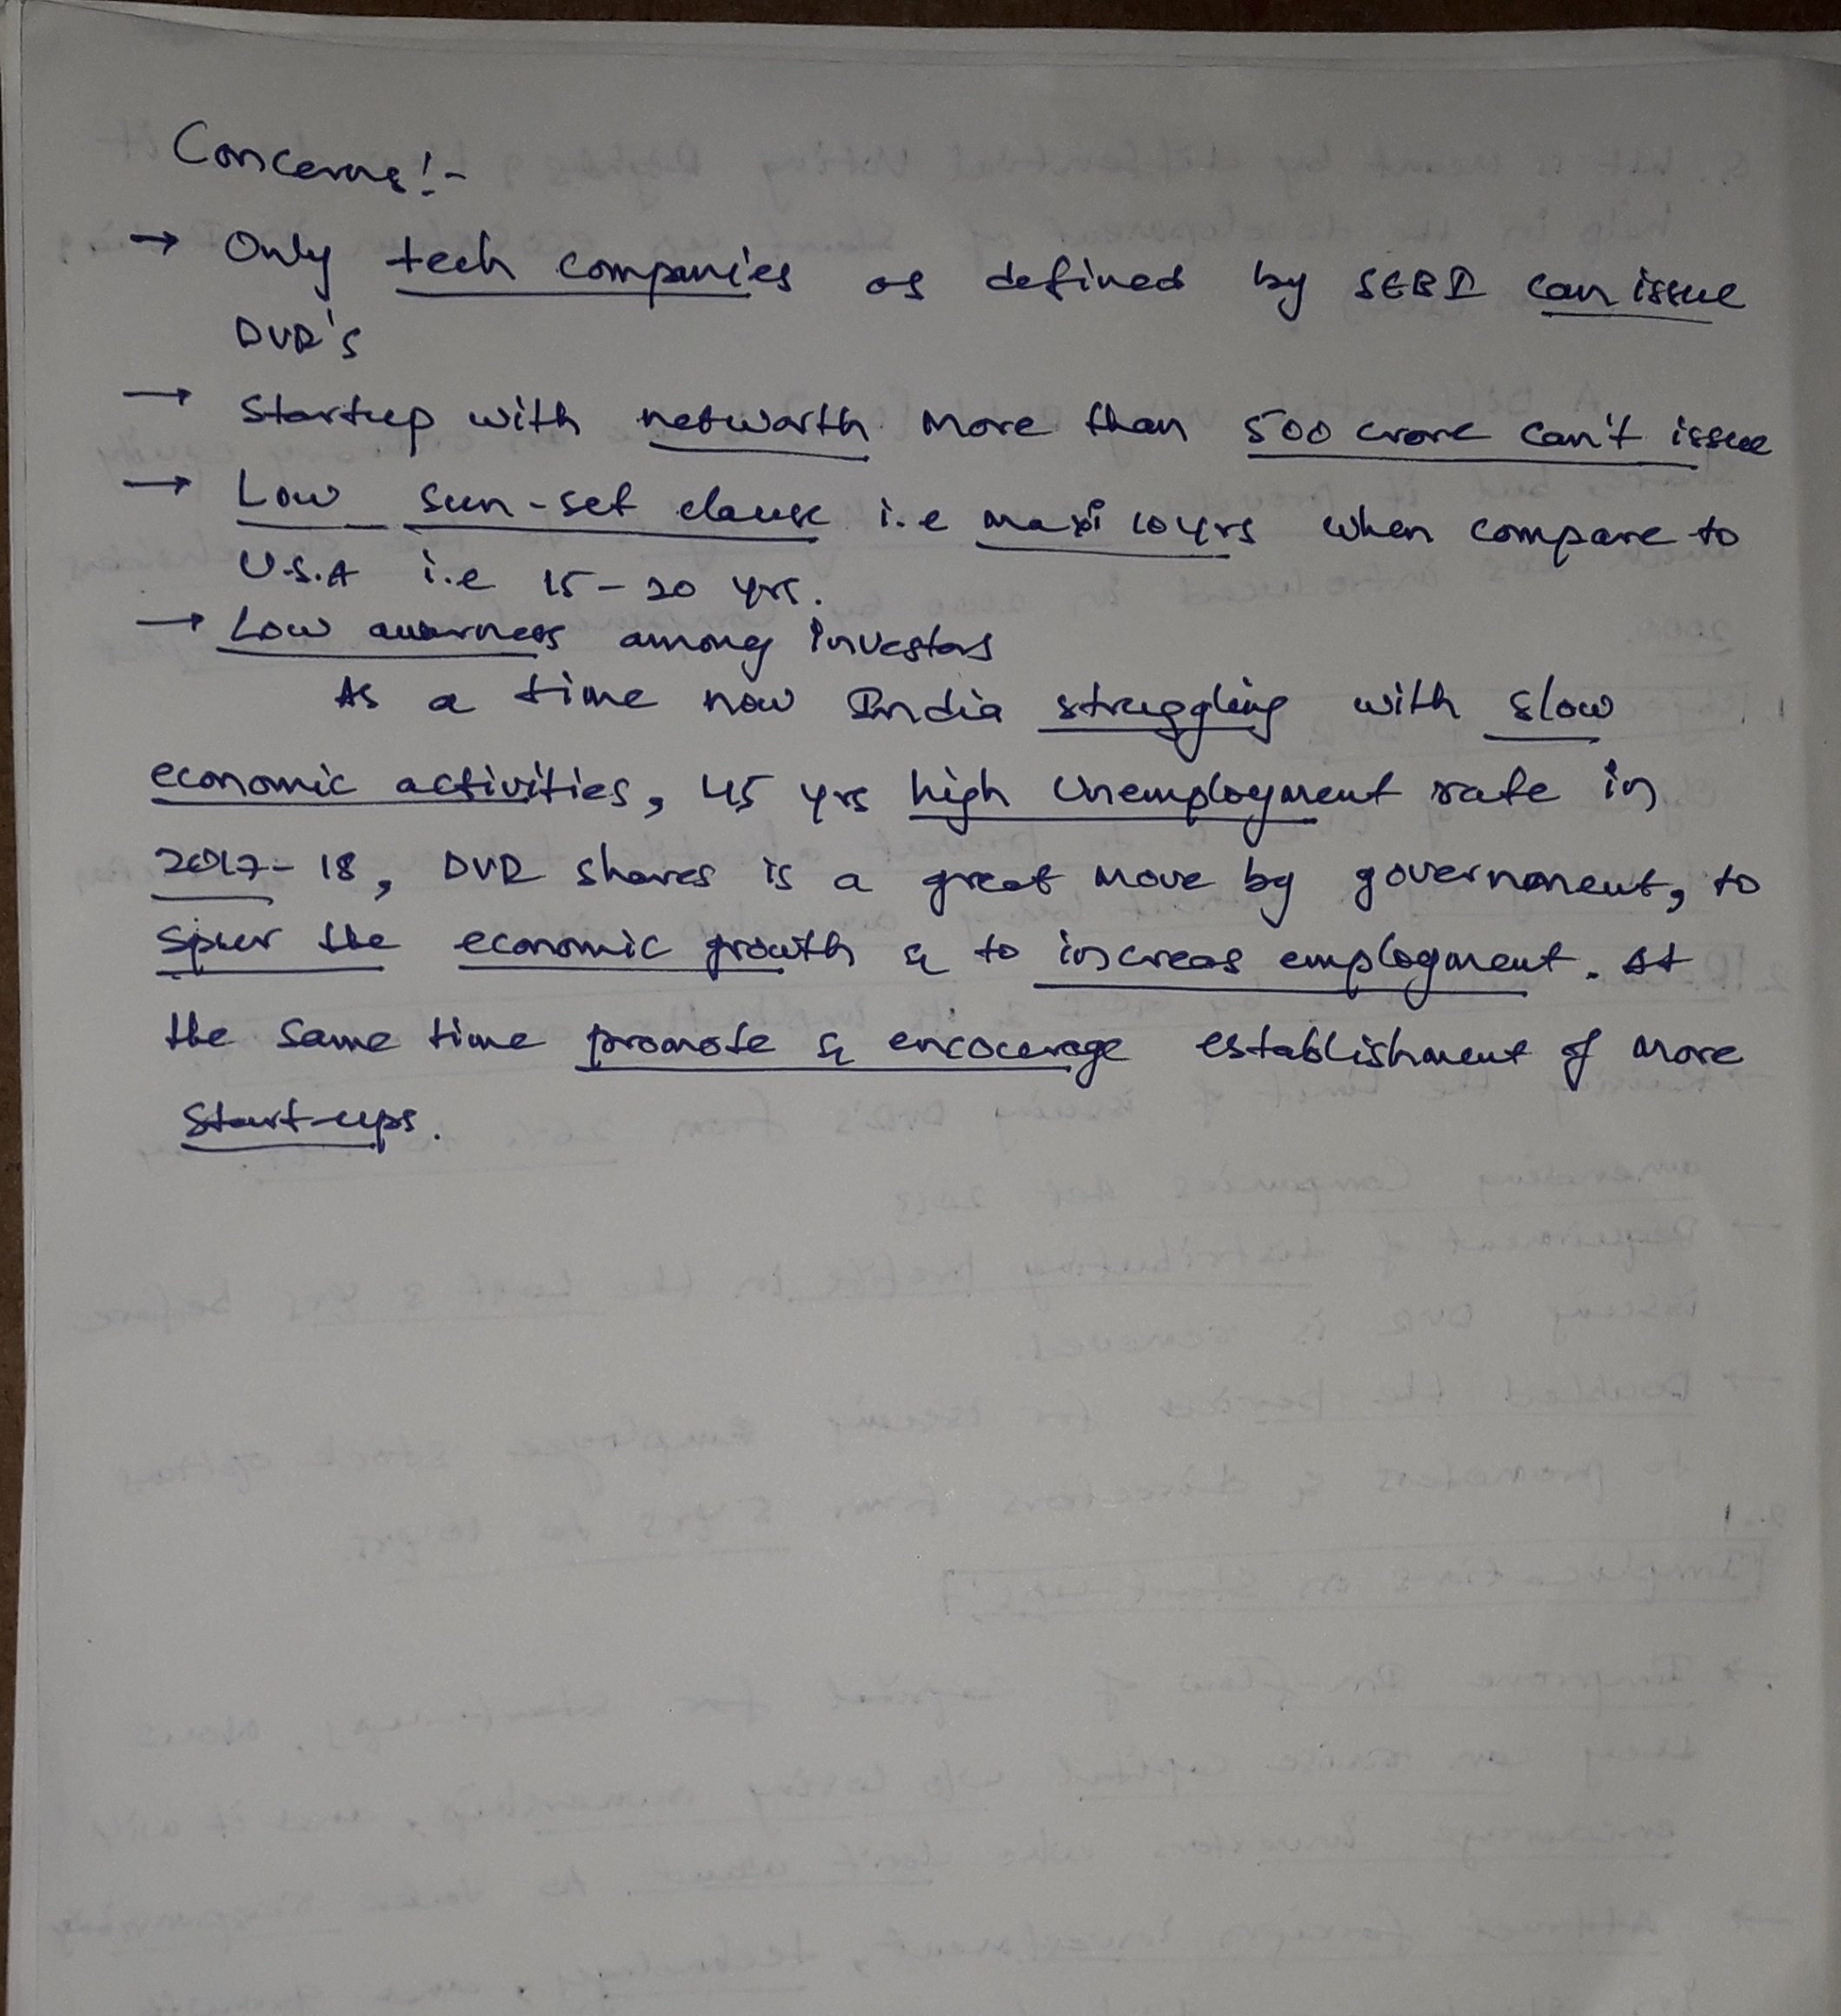 Concerns:-
→ Only tech companies as defined by SEBI can issue
DVR's
→ Startup with networth more than 500 crore can't issue
→ Low sun-set clause i.e maxi 10 yrs when compare to
U.S.A i.e 15-20 yrs.
→ Low awarness among investors
As a time now India struggling with slow
economic activities, 45 yrs high unemployment rate in
2017-18, DVR shares is a great move by government, to
spur the economic growth & to increas employment. At
the same time promote & encourage establishment of more
Start-ups.